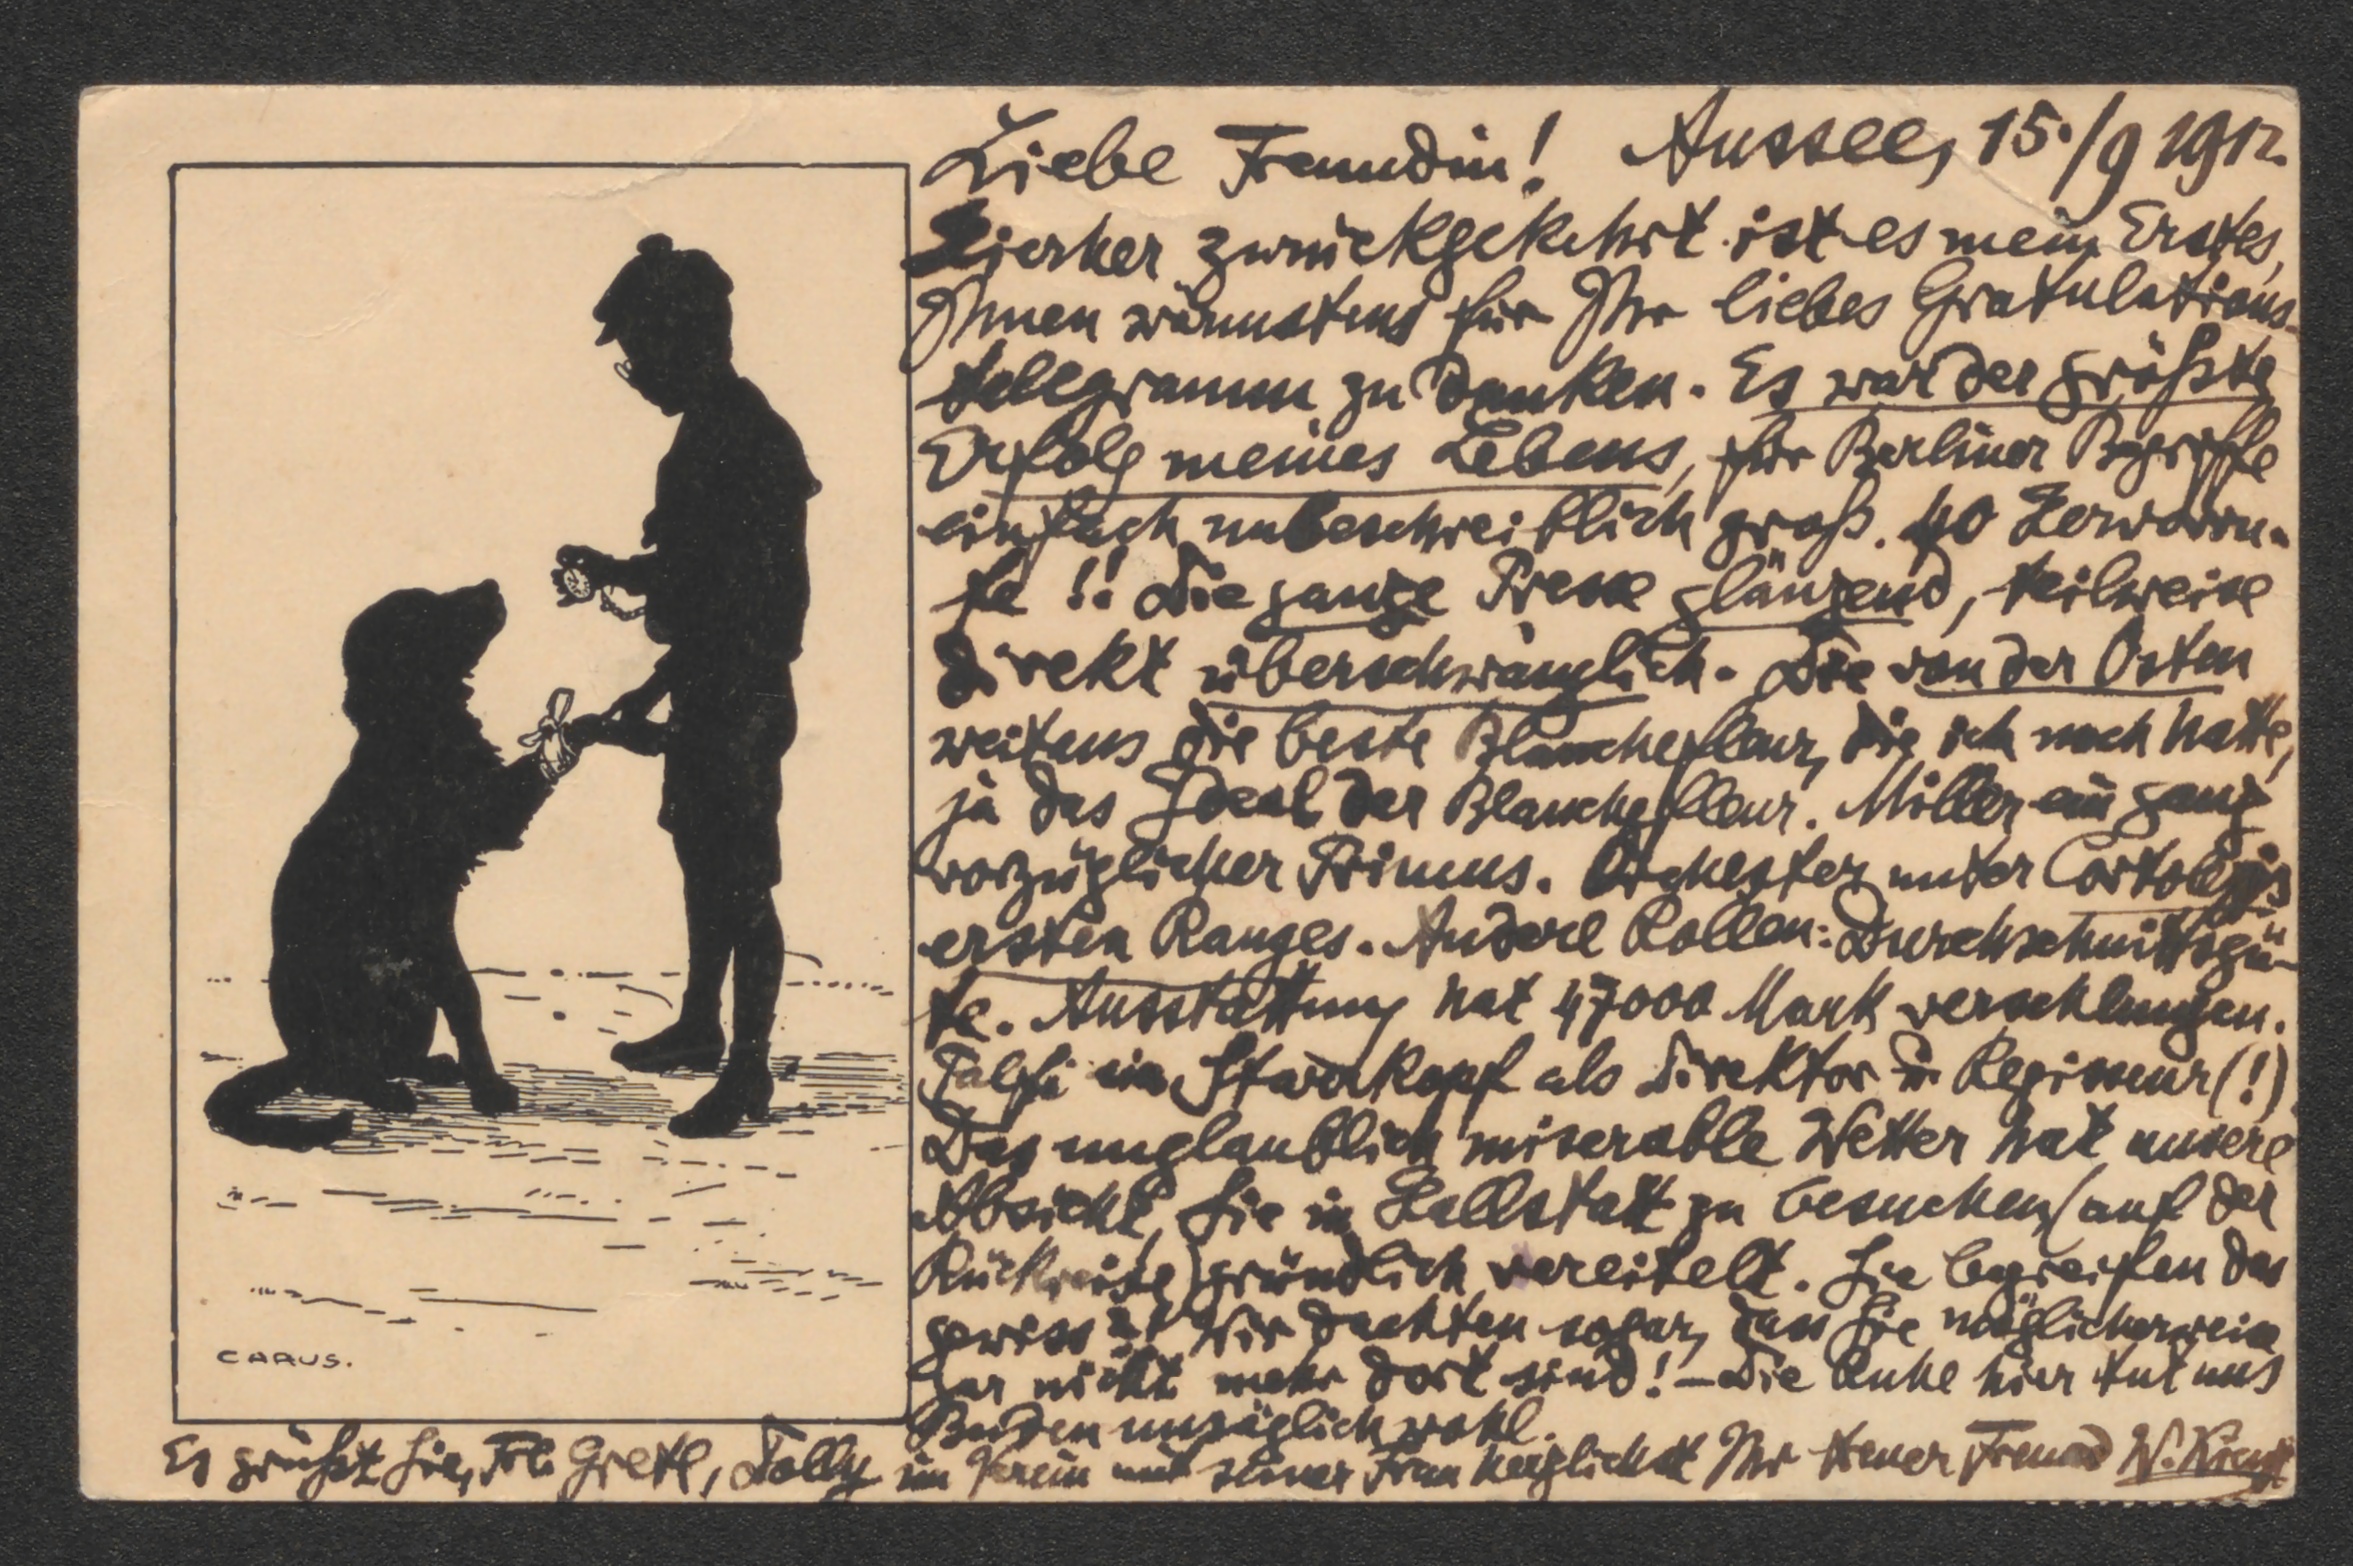 Liebe Freundin! Aussee, 15./9 1912.
Hierher zurückgekehrt ist es mein Erstes,
Ihnen wärmstens für Ihr liebes Gratulations-
telegramm zu danken. Es war der größte
Erfolg meines Lebens, für Berliner Begriffe
einfach unbeschreiblich groß. 40 Hervorru-
fe!! Die ganze Presse glänzend, teilweise
direkt überschwänglich. Die von der Osten
weitaus die beste Blanchefleur, die ich noch hatte,
ja das Ideal der Blanchefleur. Miller ein ganz
vorzüglicher Primus. Orchester unter Cortolezis
ersten Ranges. Andere Rollen: Durchschnittsgü-
te. Ausstattung hat 47000 Mark verschlungen.
Palfi ein als Direktor u. Regisseur (!)
Das unglaublich miserable Wetter hat unsere
Absicht, Sie in Hallstatt zu besuchen (auf der
Rückreise) gründlich vereitelt. Sie begreifen das
gewiss?! Wir dachten sogar, dass Sie möglicherweise
gar nicht mehr dort sind! – Die Ruhe hier tut uns
Beiden unsäglich wohl.
Es grüßt Sie, Frl. Gretl, Dolly im Verein mit seiner Frau herzlichst Ihr treuer Freund W. Kienzl
CARUS.